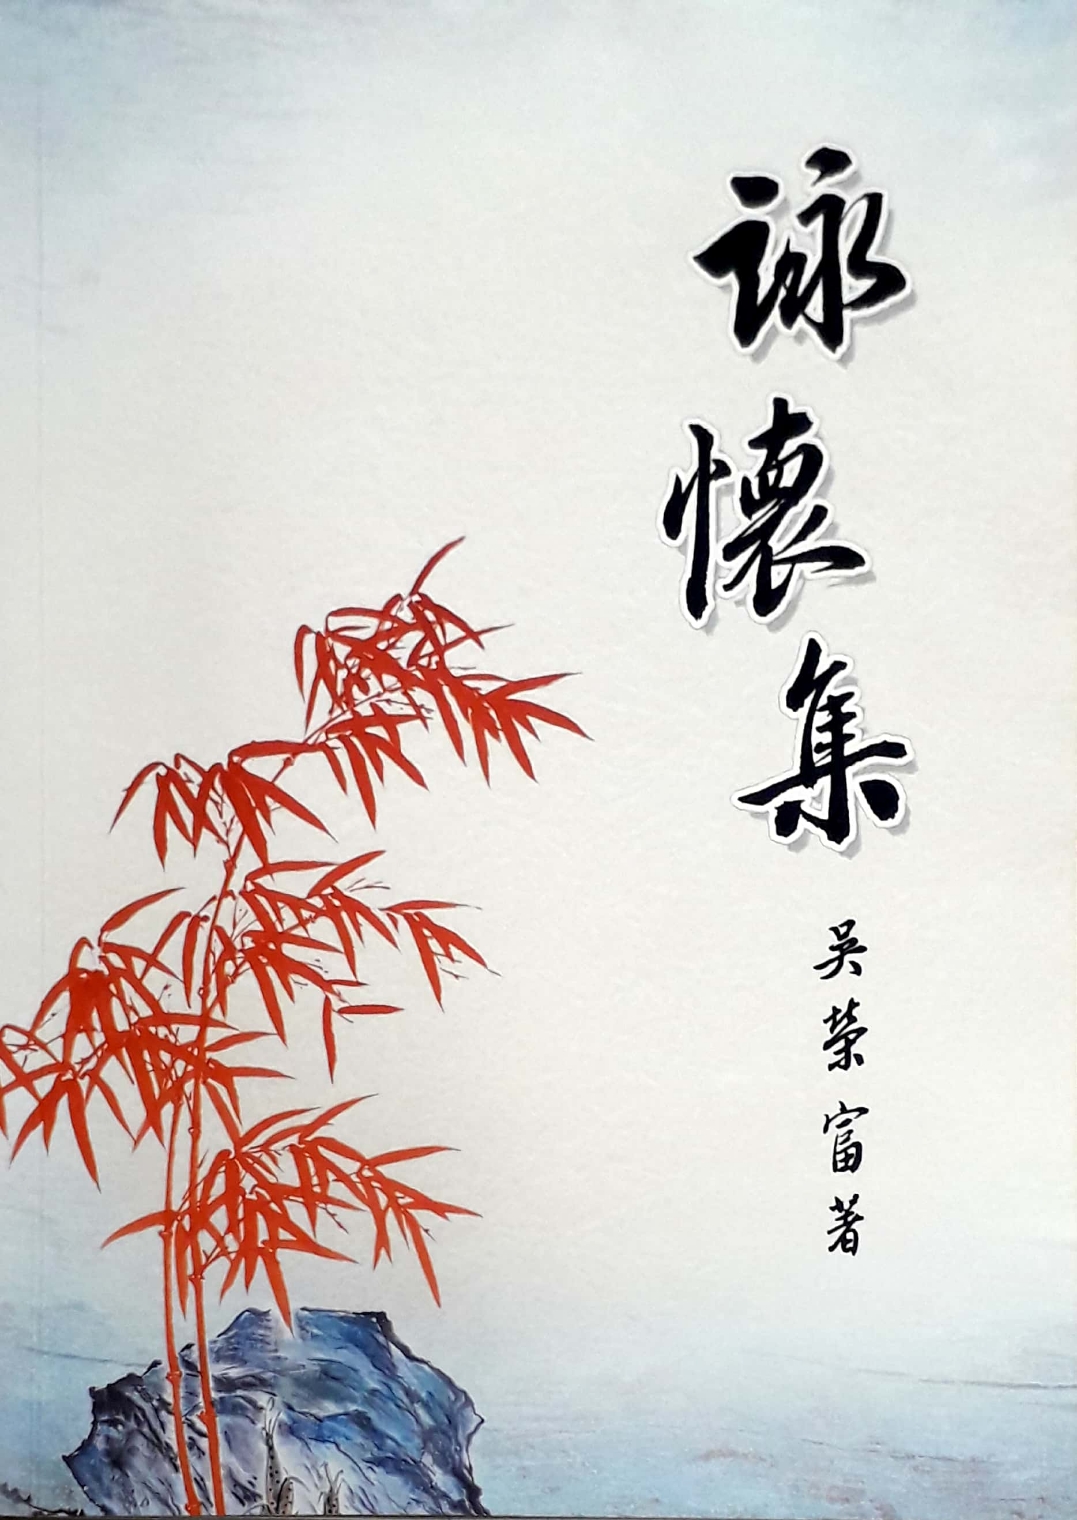 詠懷集
吳榮富著